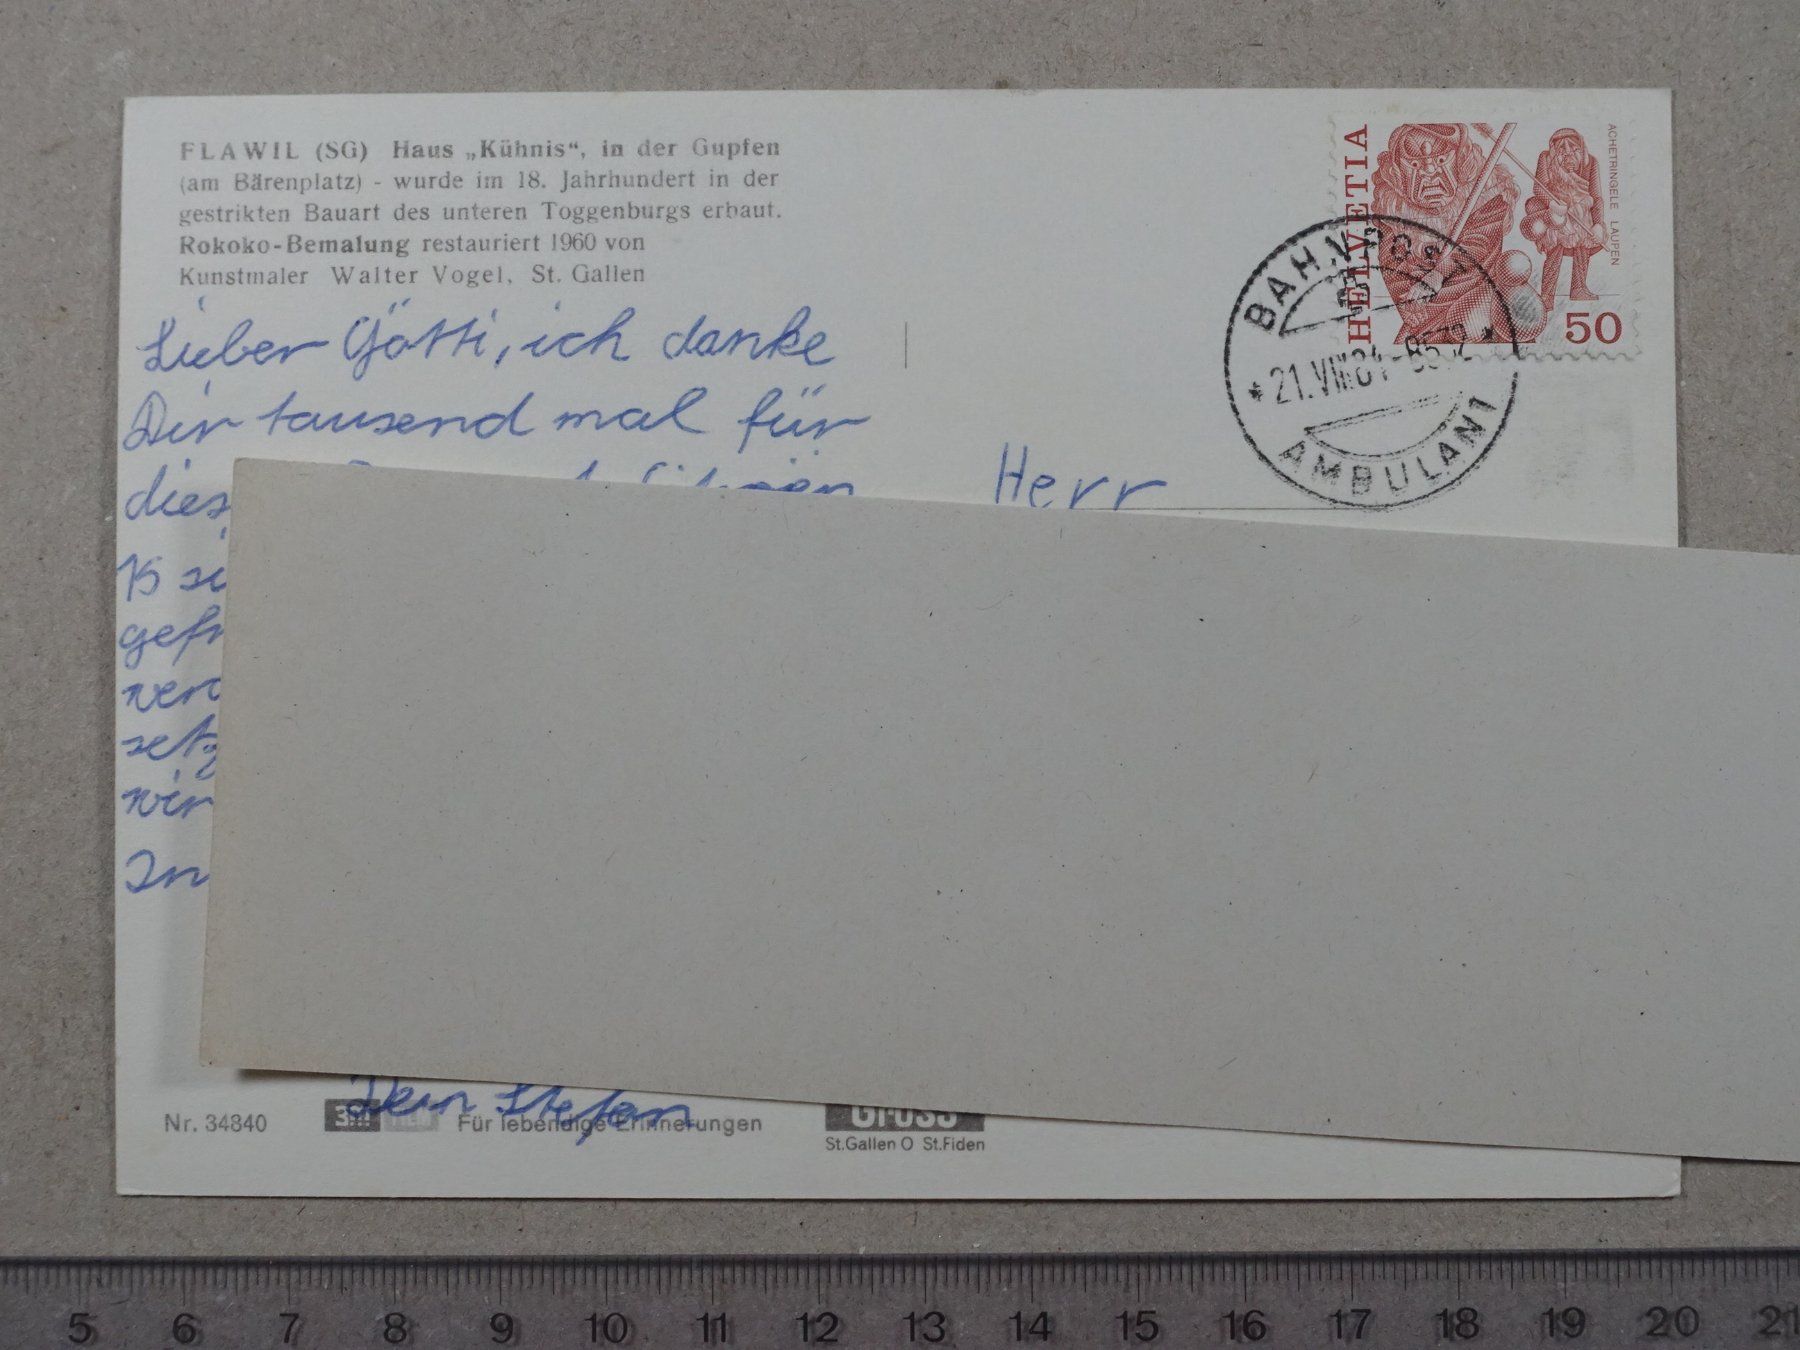 FLAWIL (SG) Haus „Kühnis“, in der Gupfen
(am Bärenplatz) - wurde im 18. Jahrhundert in der
gestrikten Bauart des unteren Toggenburgs erbaut.
Rokoko-Bemalung restauriert 1960 von
Kunstmaler Walter Vogel, St. Gallen
HELVETIA
ACHETRINGELE LAUPEN
50
BAHNPOST
21.VIII.84-8572
AMBULANT
Lieber Götti, ich danke
Dir tausend mal für
Herr
In
Dein Stefan
Nr. 34840
Für lebendige Erinnerungen
Gross
St.Gallen O St.Fiden
5 6 7 8 9 10 11 12 13 14 15 16 17 18 19 20 21